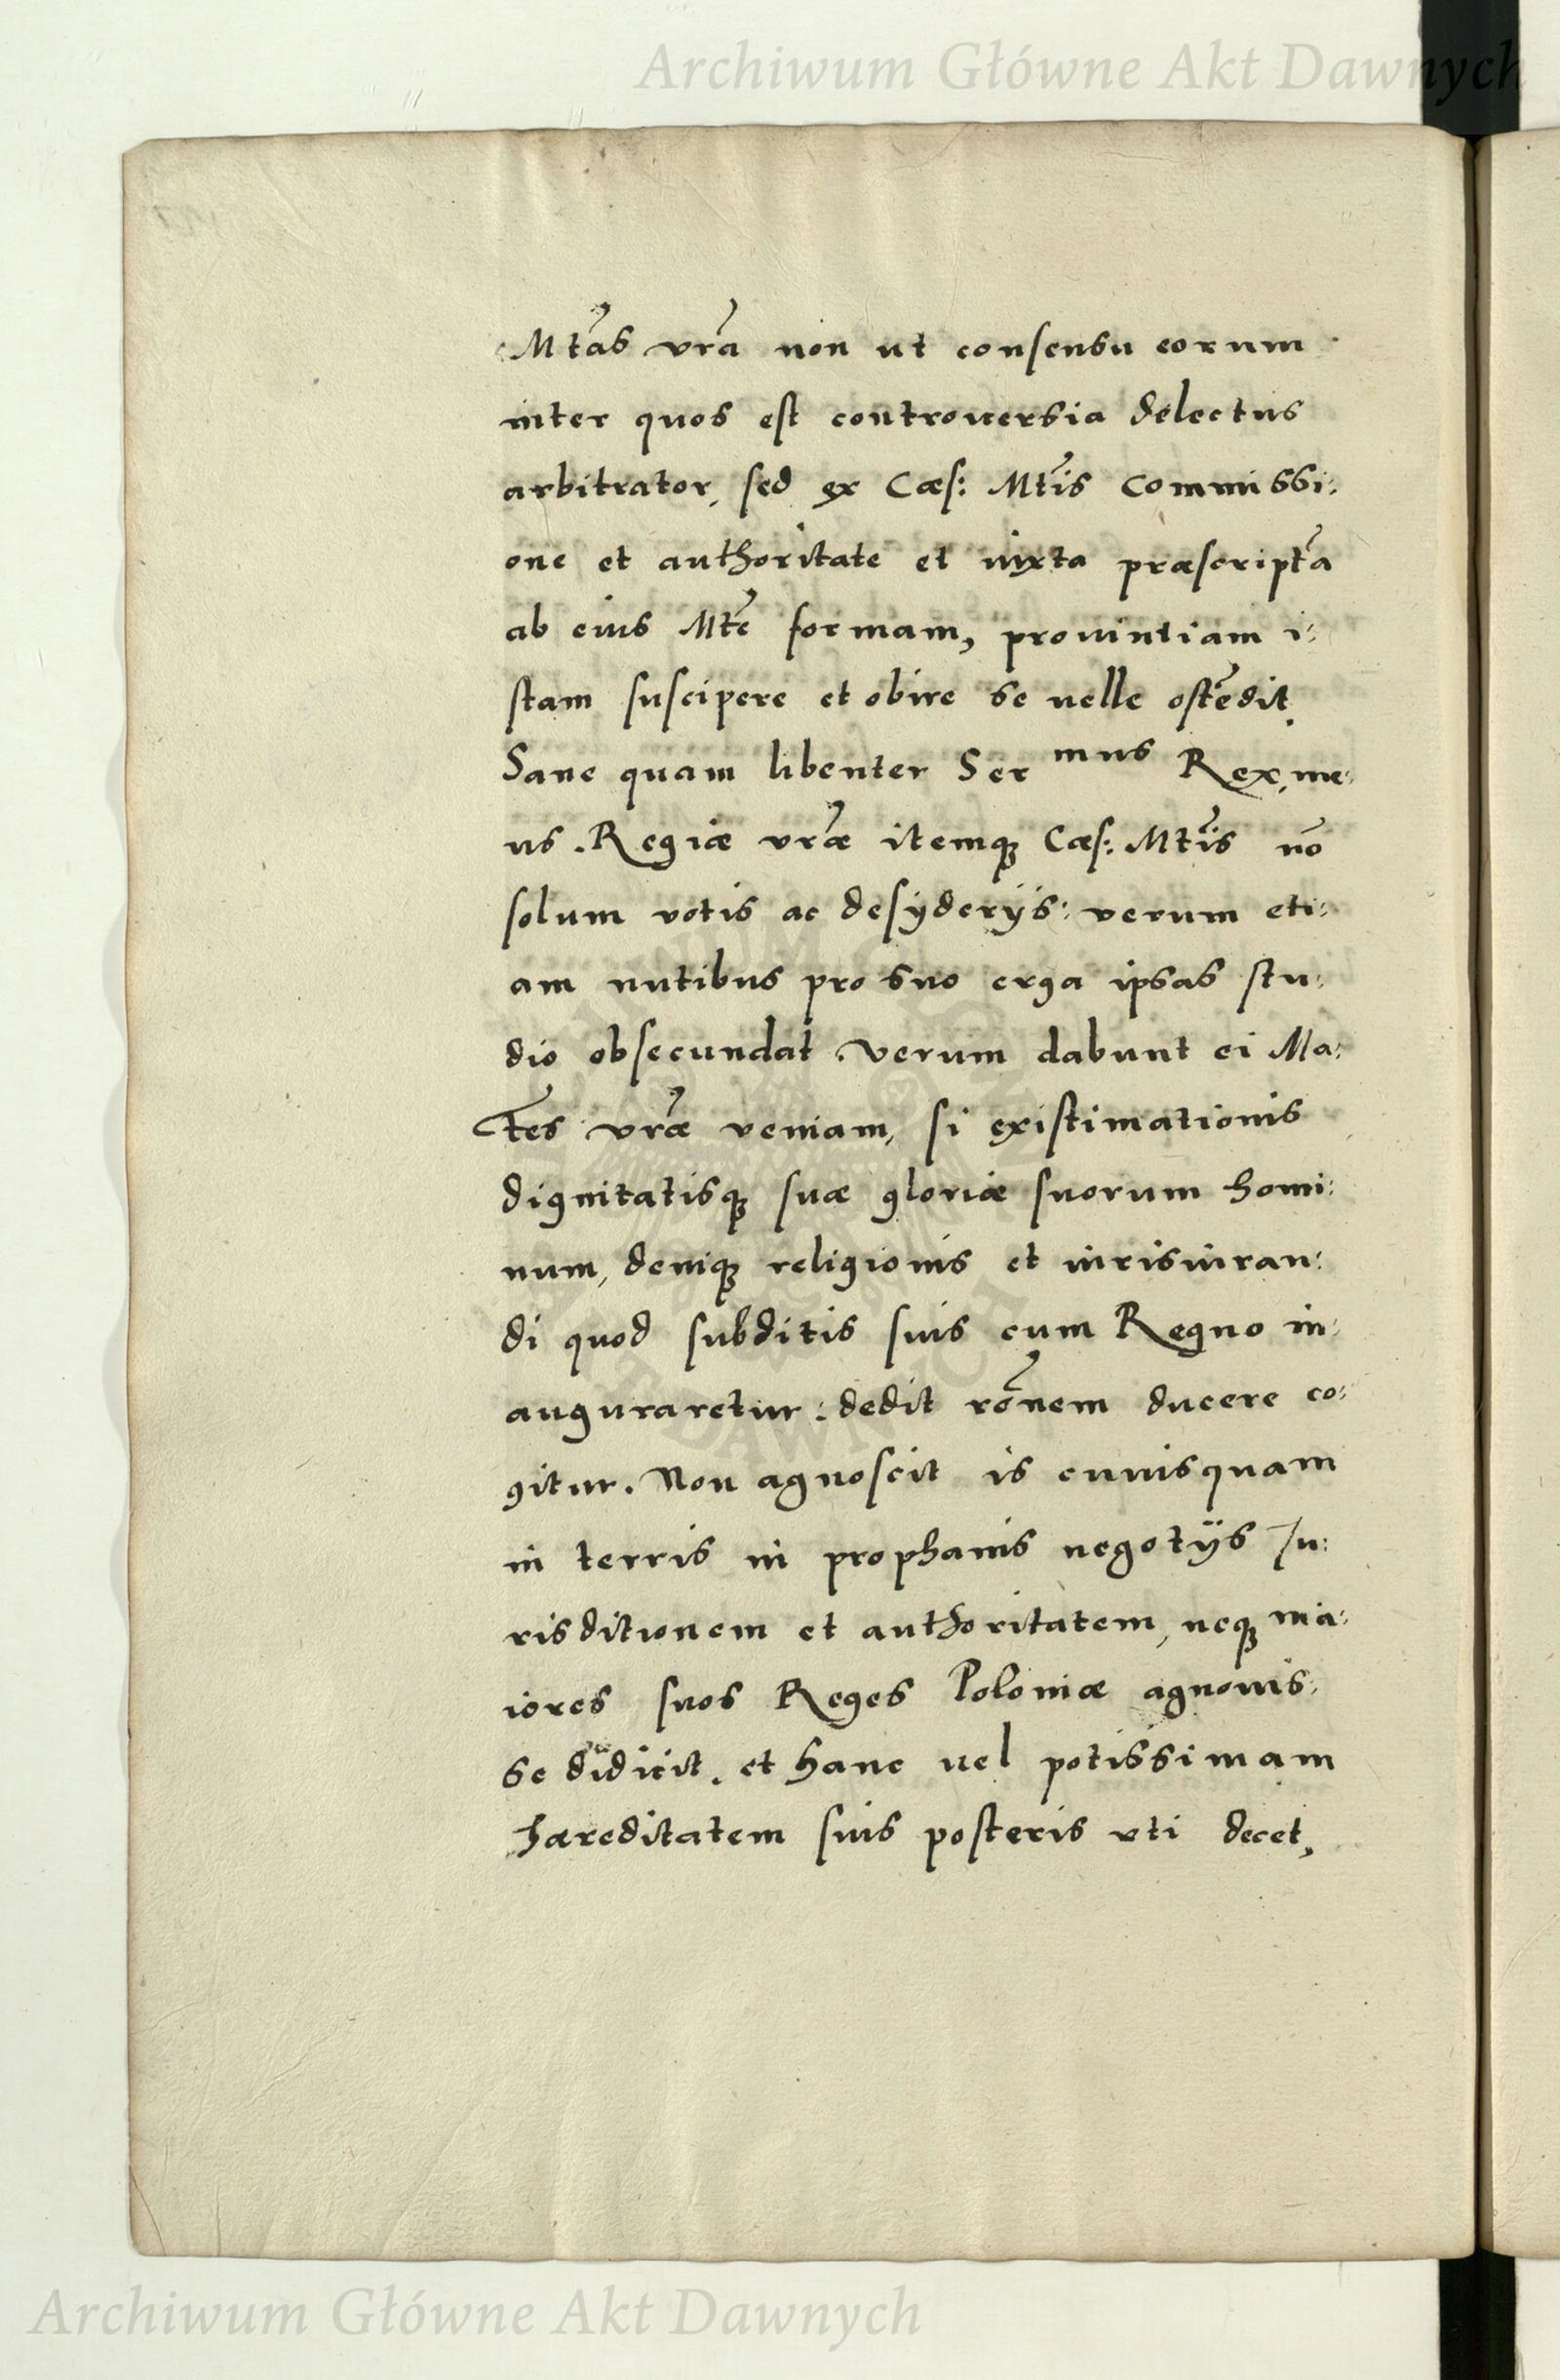 Archiwum Główne Akt Dawnych
Mtas vra non ut consensu eorum
inter quos est controuersia delectus
arbitrator, sed ex Cæs: Mtis Commissi:
one et authoritate et iuxta præscriptã
ab eius Mte formam, prouintiam i:
stam suscipere et obire se uelle ostẽdit.
Sane quam libenter Ser mus Rex, me:
us. Regiæ vræ itemq3 Cæs: Mtis nõ
solum votis ac desyderijs: verum eti:
am nutibus pro suo erga ipsas stu:
dio obsecundat. Verum dabunt ei Ma:
tes vræ veniam, si existimationis
dignitatisq3 suæ gloriæ suorum homi:
num, deniq3 religionis et iurisiuran:
di quod subditis suis cum Regno in:
auguraretur: dedit rõnem ducere co:
gitur. Non agnoscit is cuiusquam
in terris in prophanis negotijs Iu:
risditionem et authoritatem, neq3 ma:
iores suos Reges Poloniæ agnouis:
se didicit. et hanc uel potissimam
hæreditatem suis posteris vti decet,
Archiwum Główne Akt Dawnych